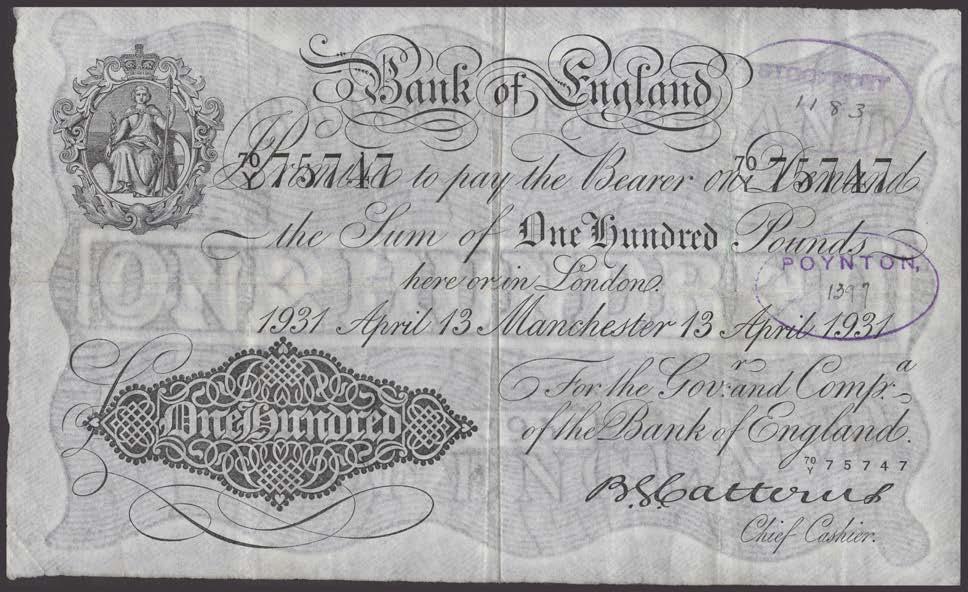 Bank of England
STOCKPORT
1183
70/Y 75747 70/Y 75747
Promise to pay the Bearer on Demand
the Sum of One Hundred Pounds
here or in London.
POYNTON,
1397
1931 April 13 Manchester 13 April 1931
For the Gov.r and Comp.a
of the Bank of England.
70/Y 75747
B G Catterns
Chief Cashier.
£ One Hundred
ONE HUNDRED